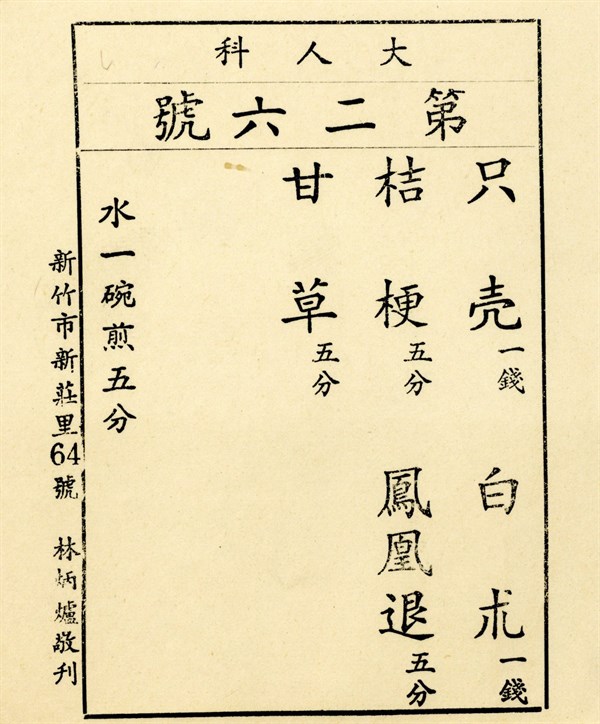 大人科
第二六號
只壳一錢 白朮一錢
桔梗五分 鳳凰退五分
甘草五分
水一碗煎五分
新竹市新莊里64號 林炳爐敬刊